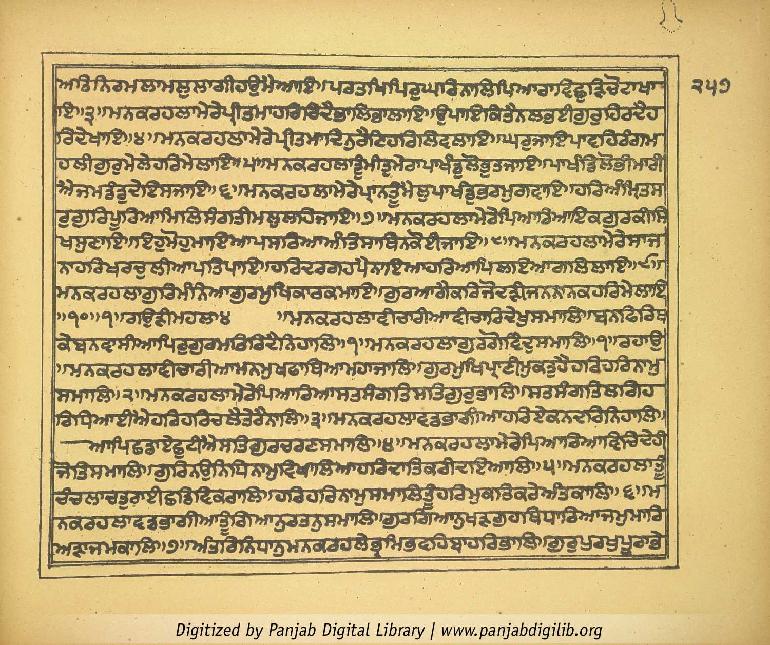 ੨੫੭
ਅਤਿਨਿਰਮਲਾਮਲੁਲਾਗੀਹਉਮੈਆਇ॥ਪਰਤਖਿਪਿਰੁਘਰਿਨਾਲਿਪਿਆਰਾਵਿਛੁੜਿਚੋਟਾਖਾ
ਇ॥੩॥ਮਨਕਰਹਲਾਮੇਰੇਪ੍ਰੀਤਮਾਹਰਿਰਿਦੈਭਾਲਿਭਾਲਾਇ॥ਉਪਾਇਕਿਤੈਨਲਭਈਗੁਰੁਹਿਰਦੈਹ
ਰਿਦੇਖਾਇ॥੪॥ਮਨਕਰਹਲਾਮੇਰੇਪ੍ਰੀਤਮਾਦਿਨੁਰੈਣਿਹਰਿਲਿਵਲਾਇ॥ਘਰੁਜਾਇਪਾਵਹਿਰੰਗਮ
ਹਲੀਗੁਰੁਮੇਲੇਹਰਿਮੇਲਾਇ॥੫॥ਮਨਕਰਹਲਾਤੂੰਮੀਤੁਮੇਰਾਪਾਖੰਡੁਲੋਭੁਤਜਾਇ॥ਪਾਖੰਡਿਲੋਭੀਮਾਰੀ
ਐਜਮਡੰਡੁਦੇਇਸਜਾਇ॥੬॥ਮਨਕਰਹਲਾਮੇਰੇਪ੍ਰਾਨਤੂੰਮੈਲੁਪਾਖੰਡੁਭਰਮੁਗਵਾਇ॥ਹਰਿਅੰਮ੍ਰਿਤਸ
ਰੁਗੁਰਿਪੂਰਿਆਮਿਲਿਸੰਗਤੀਮਲੁਲਹਿਜਾਇ॥੭॥ਮਨਕਰਹਲਾਮੇਰੇਪਿਆਰਿਆਇਕਗੁਰਕੀਸਿ
ਖਸੁਣਾਇ॥ਇਹੁਮੋਹੁਮਾਇਆਪਸਰਿਆਅੰਤਿਸਾਥਿਨਕੋਈਜਾਇ॥੮॥ਮਨਕਰਹਲਾਮੇਰੇਸਾਜ
ਨਾਹਰਿਖਰਚੁਲੀਆਪਤਿਪਾਇ॥ਹਰਿਦਰਗਹਪੈਨਾਇਆਹਰਿਆਪਿਲਇਆਗਲਿਲਾਇ॥੯॥
ਮਨਕਰਹਲਾਗੁਰਿਮੰਨਿਆਗੁਰਮੁਖਿਕਾਰਕਮਾਇ॥ਗੁਰਆਗੈਕਰਿਜੋਦੜੀਜਨਨਾਨਕਹਰਿਮੇਲਾਇ
॥੧੦॥੧॥ਗਉੜੀਮਹਲਾ੪ ॥ਮਨਕਰਹਲਾਵੀਚਾਰੀਆਵੀਚਾਰਿਦੇਖੁਸਮਾਲਿ॥ਬਨਫਿਰਿਥ
ਕੇਬਨਵਾਸੀਆਪਿਰੁਗੁਰਮਤਿਰਿਦੈਨਿਹਾਲਿ॥੧॥ਮਨਕਰਹਲਾਗੁਰਗੋਵਿੰਦੁਸਮਾਲਿ॥੧॥ਰਹਾਉ
॥ਮਨਕਰਹਲਾਵੀਚਾਰੀਆਮਨਮੁਖਫਾਥਿਆਮਹਾਜਾਲਿ॥ਗੁਰਮੁਖਿਪ੍ਰਾਣੀਮੁਕਤੁਹੈਹਰਿਹਰਿਨਾਮੁ
ਸਮਾਲਿ॥੨॥ਮਨਕਰਹਲਾਮੇਰੇਪਿਆਰਿਆਸਤਸੰਗਤਿਸਤਿਗੁਰੁਭਾਲਿ॥ਸਤਸੰਗਤਿਲਗਿਹ
ਰਿਧਿਆਈਐਹਰਿਹਰਿਚਲੈਤੇਰੈਨਾਲਿ॥੩॥ਮਨਕਰਹਲਾਵਡਭਾਗੀਆਹਰਿਏਕਨਦਰਿਨਿਹਾਲਿ॥
ਆਪਿਛਡਾਏਛੁਟੀਐਸਤਿਗੁਰਚਰਣਸਮਾਲਿ॥੪॥ਮਨਕਰਹਲਾਮੇਰੇਪਿਆਰਿਆਵਿਚਿਦੇਹੀ
ਜੋਤਿਸਮਾਲਿ॥ਗੁਰਿਨਉਨਿਧਿਨਾਮੁਵਿਖਾਲਿਆਹਰਿਦਾਤਿਕਰੀਦਇਆਲਿ॥੫॥ਮਨਕਰਹਲਾਤੂੰ
ਚੰਚਲਾਚਤੁਰਾਈਛਡਿਵਿਕਰਾਲਿ॥ਹਰਿਹਰਿਨਾਮੁਸਮਾਲਿਤੂੰਹਰਿਮੁਕਤਿਕਰੇਅੰਤਕਾਲਿ॥੬॥ਮ
ਨਕਰਹਲਾਵਡਭਾਗੀਆਤੂੰਗਿਆਨੁਰਤਨੁਸਮਾਲਿ॥ਗੁਰਗਿਆਨੁਖੜਗੁਹਥਿਧਾਰਿਆਜਮੁਮਾਰਿ
ਅੜਾਜਮਕਾਲਿ॥੭॥ਅੰਤਰਿਨਿਧਾਨੁਮਨਕਰਹਲੇਭ੍ਰਮਿਭਵਹਿਬਾਹਰਿਭਾਲਿ॥ਗੁਰੁਪੁਰਖੁਪੂਰਾਭੇ
Digitized by Panjab Digital Library | www.panjabdigilib.org